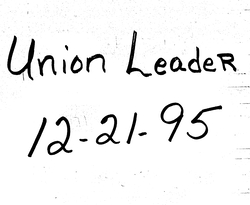 Union Leader
12-21-95